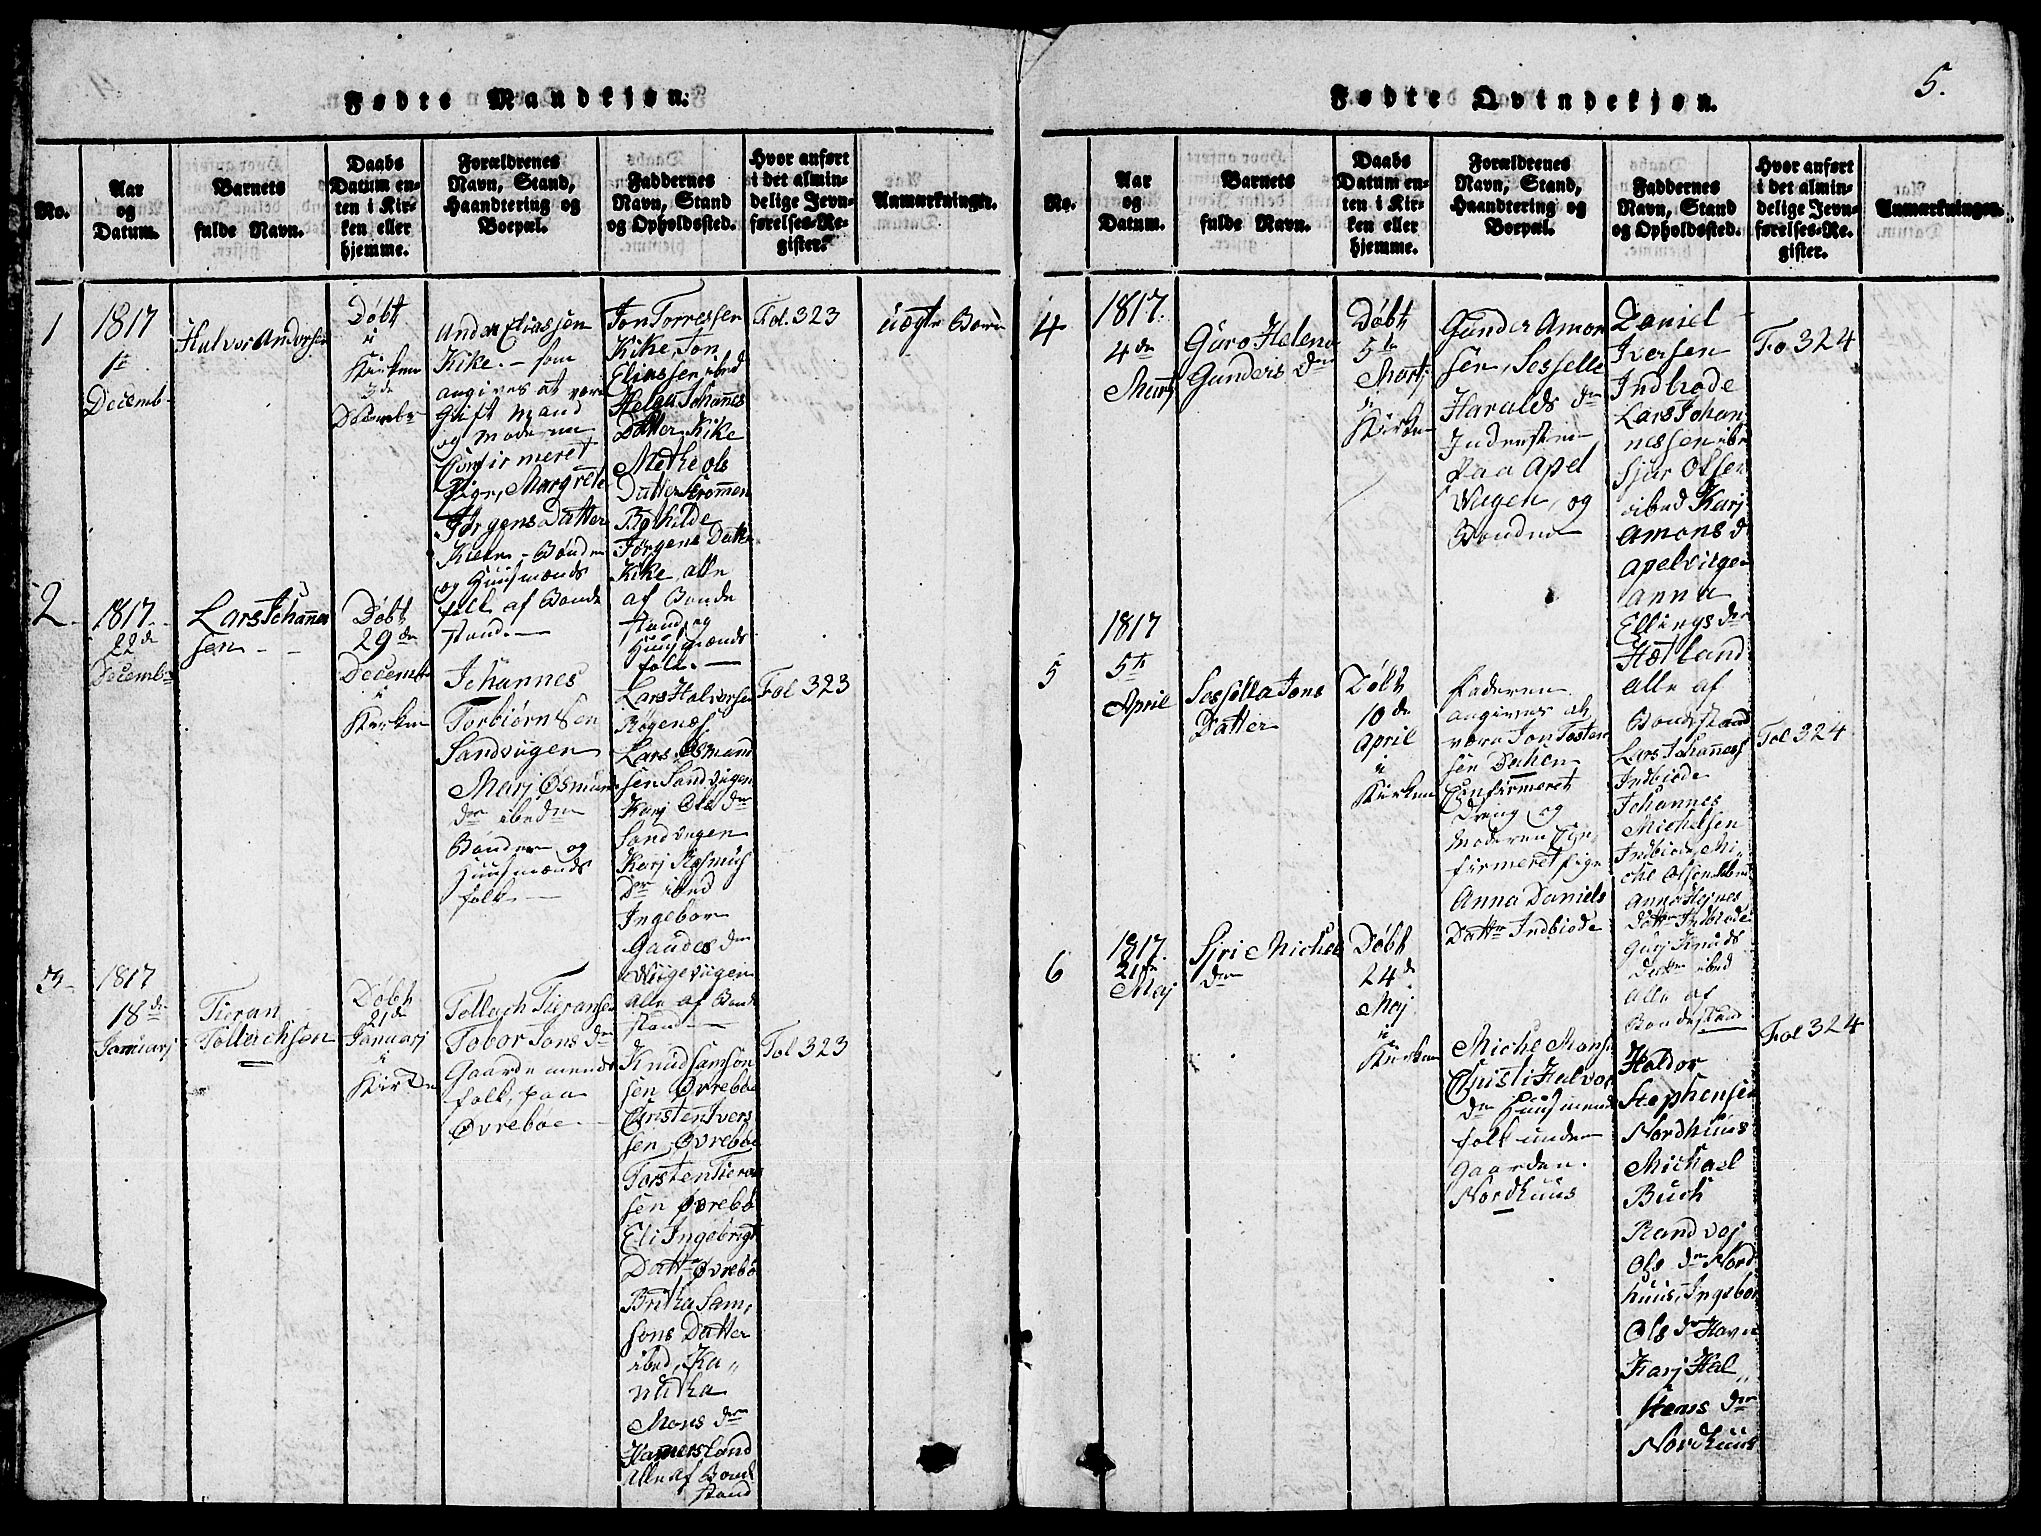 Fødte Mandkjøn.
No.
Aar
og
Datum.
Barnets
fulde Navn.
Daabs
Datum en-
ten i Kir-
ken eller
hjemme.
Forældrenes
Navn, Stand,
Haandtering og
Boepæl.
Faddernes
Navn, Stand
og Opholdssted.
Hvor anført
i det almin-
delige Jevn-
førelses-Re-
gister.
Anmærkninger.
1
1817
1te
Decemb
Halvor Andersen
Døbt
i
Kirken
3de
Decembr
Ander Eliassen
Kike. – som
angives at være
Gift Mand
og Moderen
Confirmeret
Pige, Margrete
Jørgens Datter
Kiele – Bønder
og Huusmænds
folk af Bonde
stand. –
Jon Torressen
Kike, Jon
Eliassen ibid
Helga Johanes
Datter Kike
Methe ols
Datter Strømmen
Ragnhilde
Jørgens Datter
Kike, alle
af Bonde
stand, og
Huusmænds
folk. –
Fol. 323
uægte Barn
2.
1817.
22de
Decembr
Lars Johannes
sen –
Døbt
29de
Decemb
i
Kirken
Johannes
Torbiørnsen
Sandvigen
Marj Osmunds
dr ibidm
Bønder og
Huusmænds
folk. –
Lars Halvorsen
Røgenæs
Lars Osmund
sen Sandvigen
Karj Ols dr
Sandvigen
Karj Rasmus
Dr ibid
Ingebor
Gaudes dr
Wiigevigen
alle af Bonde
stand –
Fol 323
3.
1817
18de
Januarj
Tieran
Tollachsen
Døbt
21de
Januarj
i
Kirken
Tollach Tieransen
Tobor Jons dr
Gaardemends
folk, paa
Øvrebøe
Knud Samson
sen Øvrebøe
Christen Ivers
sen, Øvrebøe
Torsten Tieran
sen Øvrebø
Eli Ingebrigt
Dattr Øvrebø
Britha Sam,
sons Datter
ibid, Ka,,
nutha
Mons dr
Hamersland
Alle af Bonde
stand
Fol 323
Fødte Qvindekjøn.
5.
No.
Aar
og
Datum.
Barnets
fulde Navn.
Daabs
Datum en-
ten i Kir-
ken eller
hjemme.
Forældrenes
Navn, Stand,
Haandtering og
Boepæl.
Faddernes
Navn, Stand
og Opholdssted.
Hvor anført
i det almin-
delige Jevn-
førelses-Re-
gister.
Anmærkninger.
4
1817.
4de
Martj
Guro Helena
Gunders Dr
Døbt
5te
Martj
i
Kirken
Gunder Amon
sen, Sesselle
Haralds dr
Inderster
paa Apel
Viigen, og
Bønder
Daniel
Iversen
Indbiøde
Lars Johan
nessen ibid
Siur Olsen
ibid Karj
Amons d
Apelviigen
Anna
Ellings dr
Hetland
Alle af
Bondestand
Fo 324
5
1817
5te
April
Sessella Jons
Datter
Døbt
10de
April
i
Kirken
Faderen
angives at
være Jon Tosten
sen Dahlen
Confirmeret
Dreng og
Moderen Con,
firmeret Pige
Anna Daniels
Dattr Indbiøde
Lars Johannes
Indbiøde
Johannes
Michelsen
Indbiøde, Mi,
chel Olsen ibid
Anna Hejnes
Datter Indbiøde
Gurj Knuds
Datter ibid
Alle af
Bondestand
Fol 324
6
1817.
21de
Maj
Sjri Michels
dr
Døbt
24de
Maj
i
Kirken
Michel Monsen
Christi Halvors
dr Huusmends
folk under
Gaarden
Nordhuus
Haldor
Stephensen
Nordhuus
Michael
Buch
Randvej
Ols dr Nord
huus, Ingebor
Ols dr Havn
Karj Hal,,
stens dr
Nordhuus
Fol 324